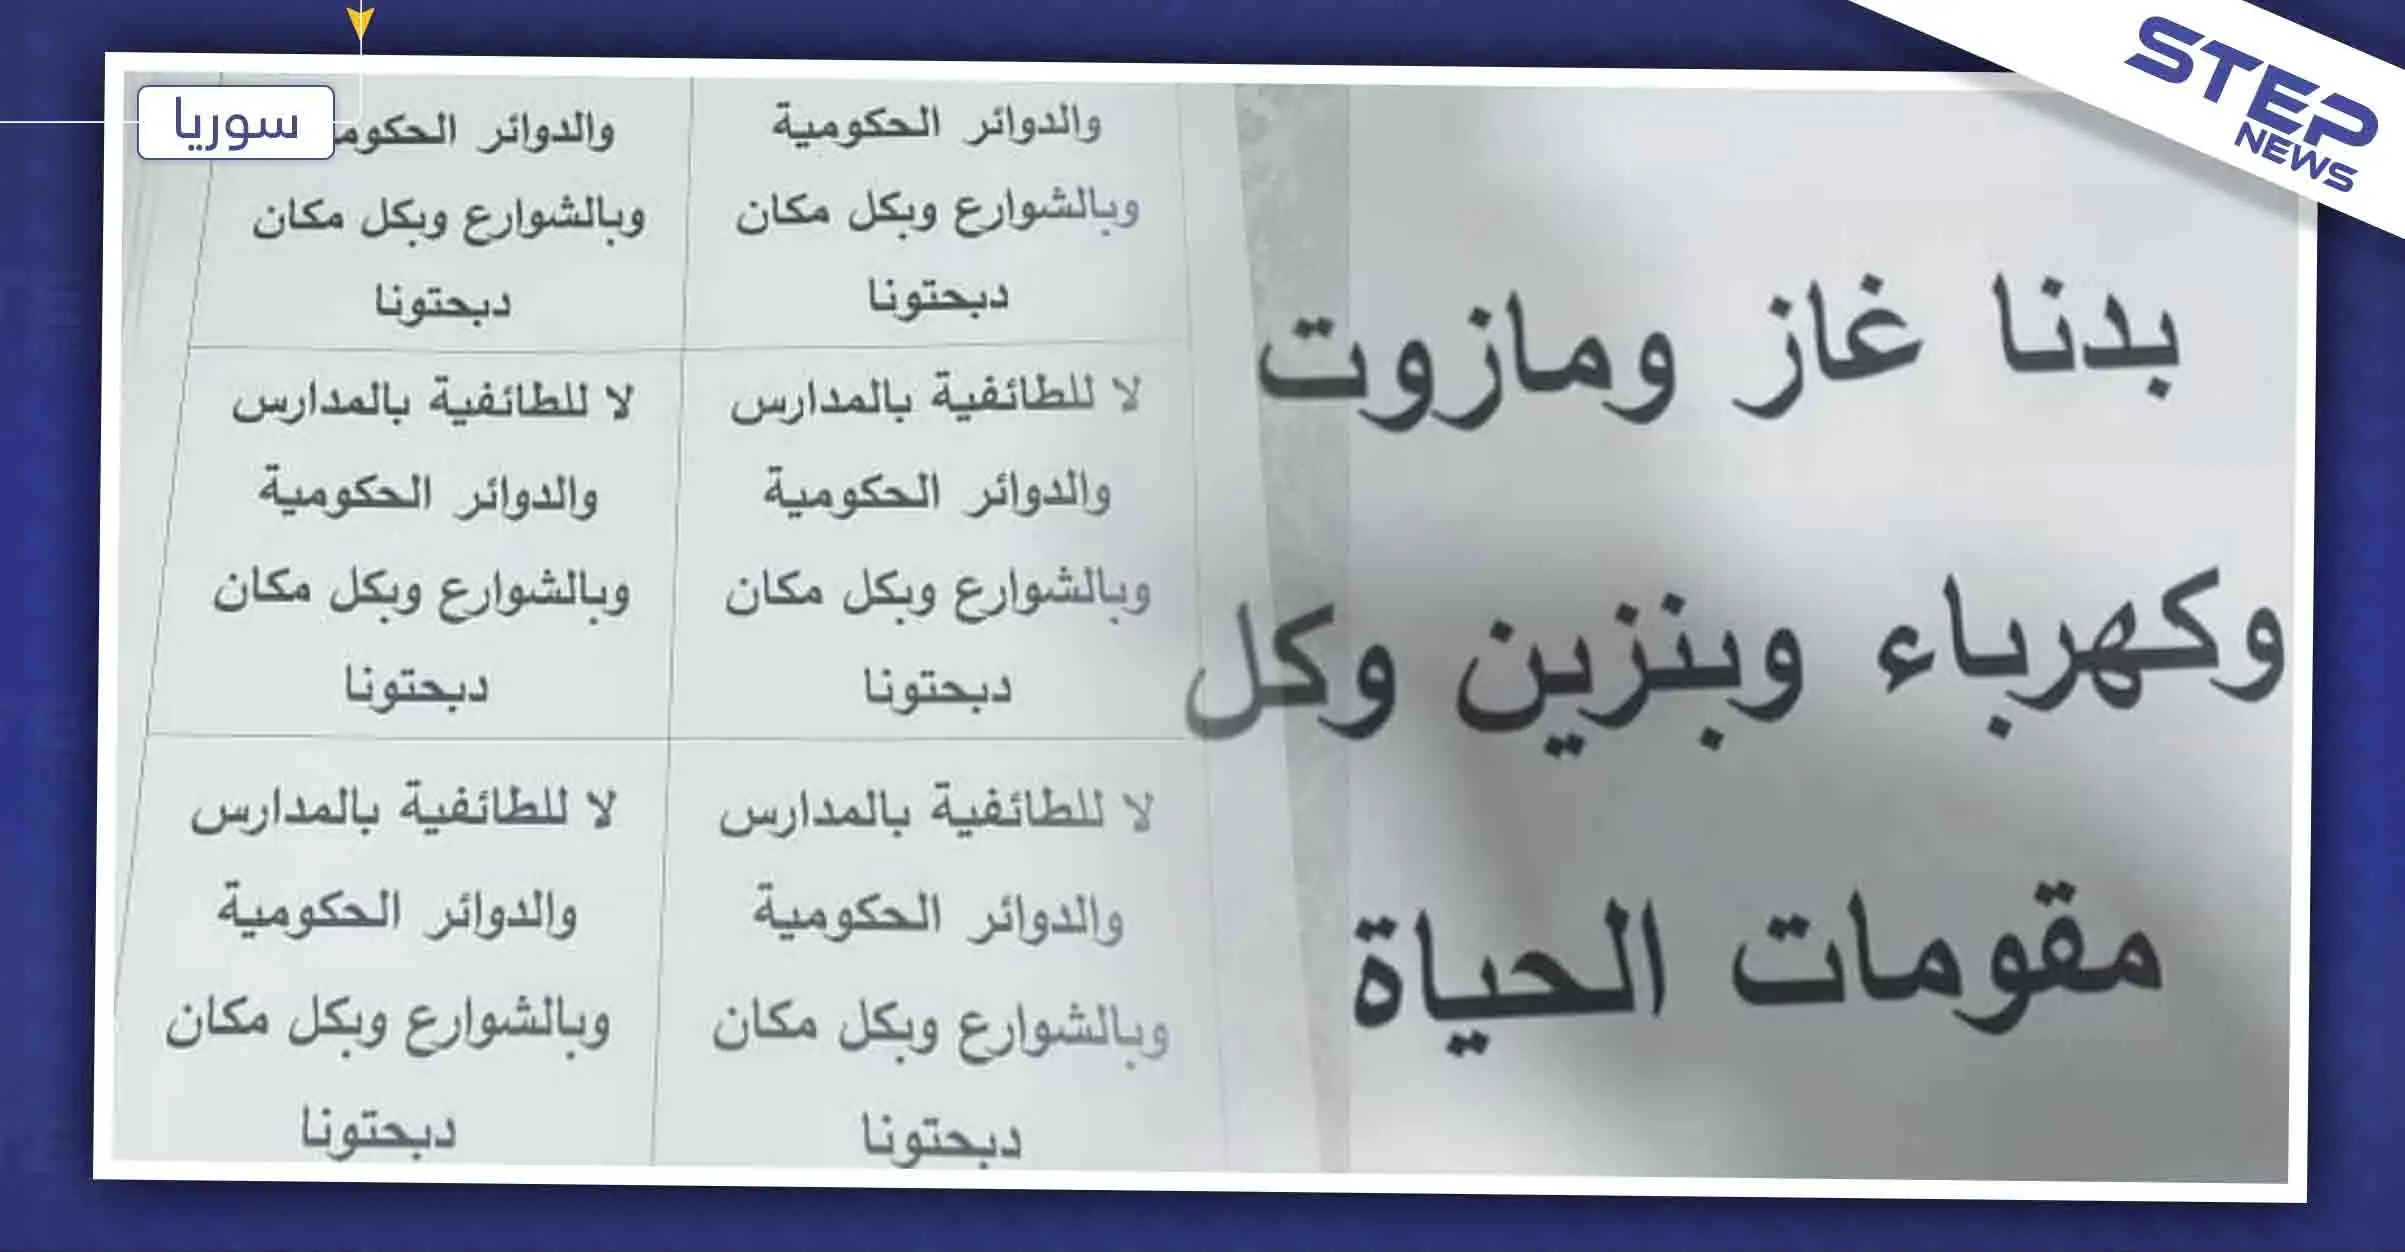 STEP
NEWS
سوريا
بدنا غاز ومازوت
وكهرباء وبنزين وكل
مقومات الحياة
والدوائر الحكومية
وبالشوارع وبكل مكان
دبحتونا
والدوائر الحكومـ
وبالشوارع وبكل مكان
دبحتونا
لا للطائفية بالمدارس
والدوائر الحكومية
وبالشوارع وبكل مكان
دبحتونا
لا للطائفية بالمدارس
والدوائر الحكومية
وبالشوارع وبكل مكان
دبحتونا
لا للطائفية بالمدارس
والدوائر الحكومية
وبالشوارع وبكل مكان
دبحتونا
لا للطائفية بالمدارس
والدوائر الحكومية
وبالشوارع وبكل مكان
دبحتونا